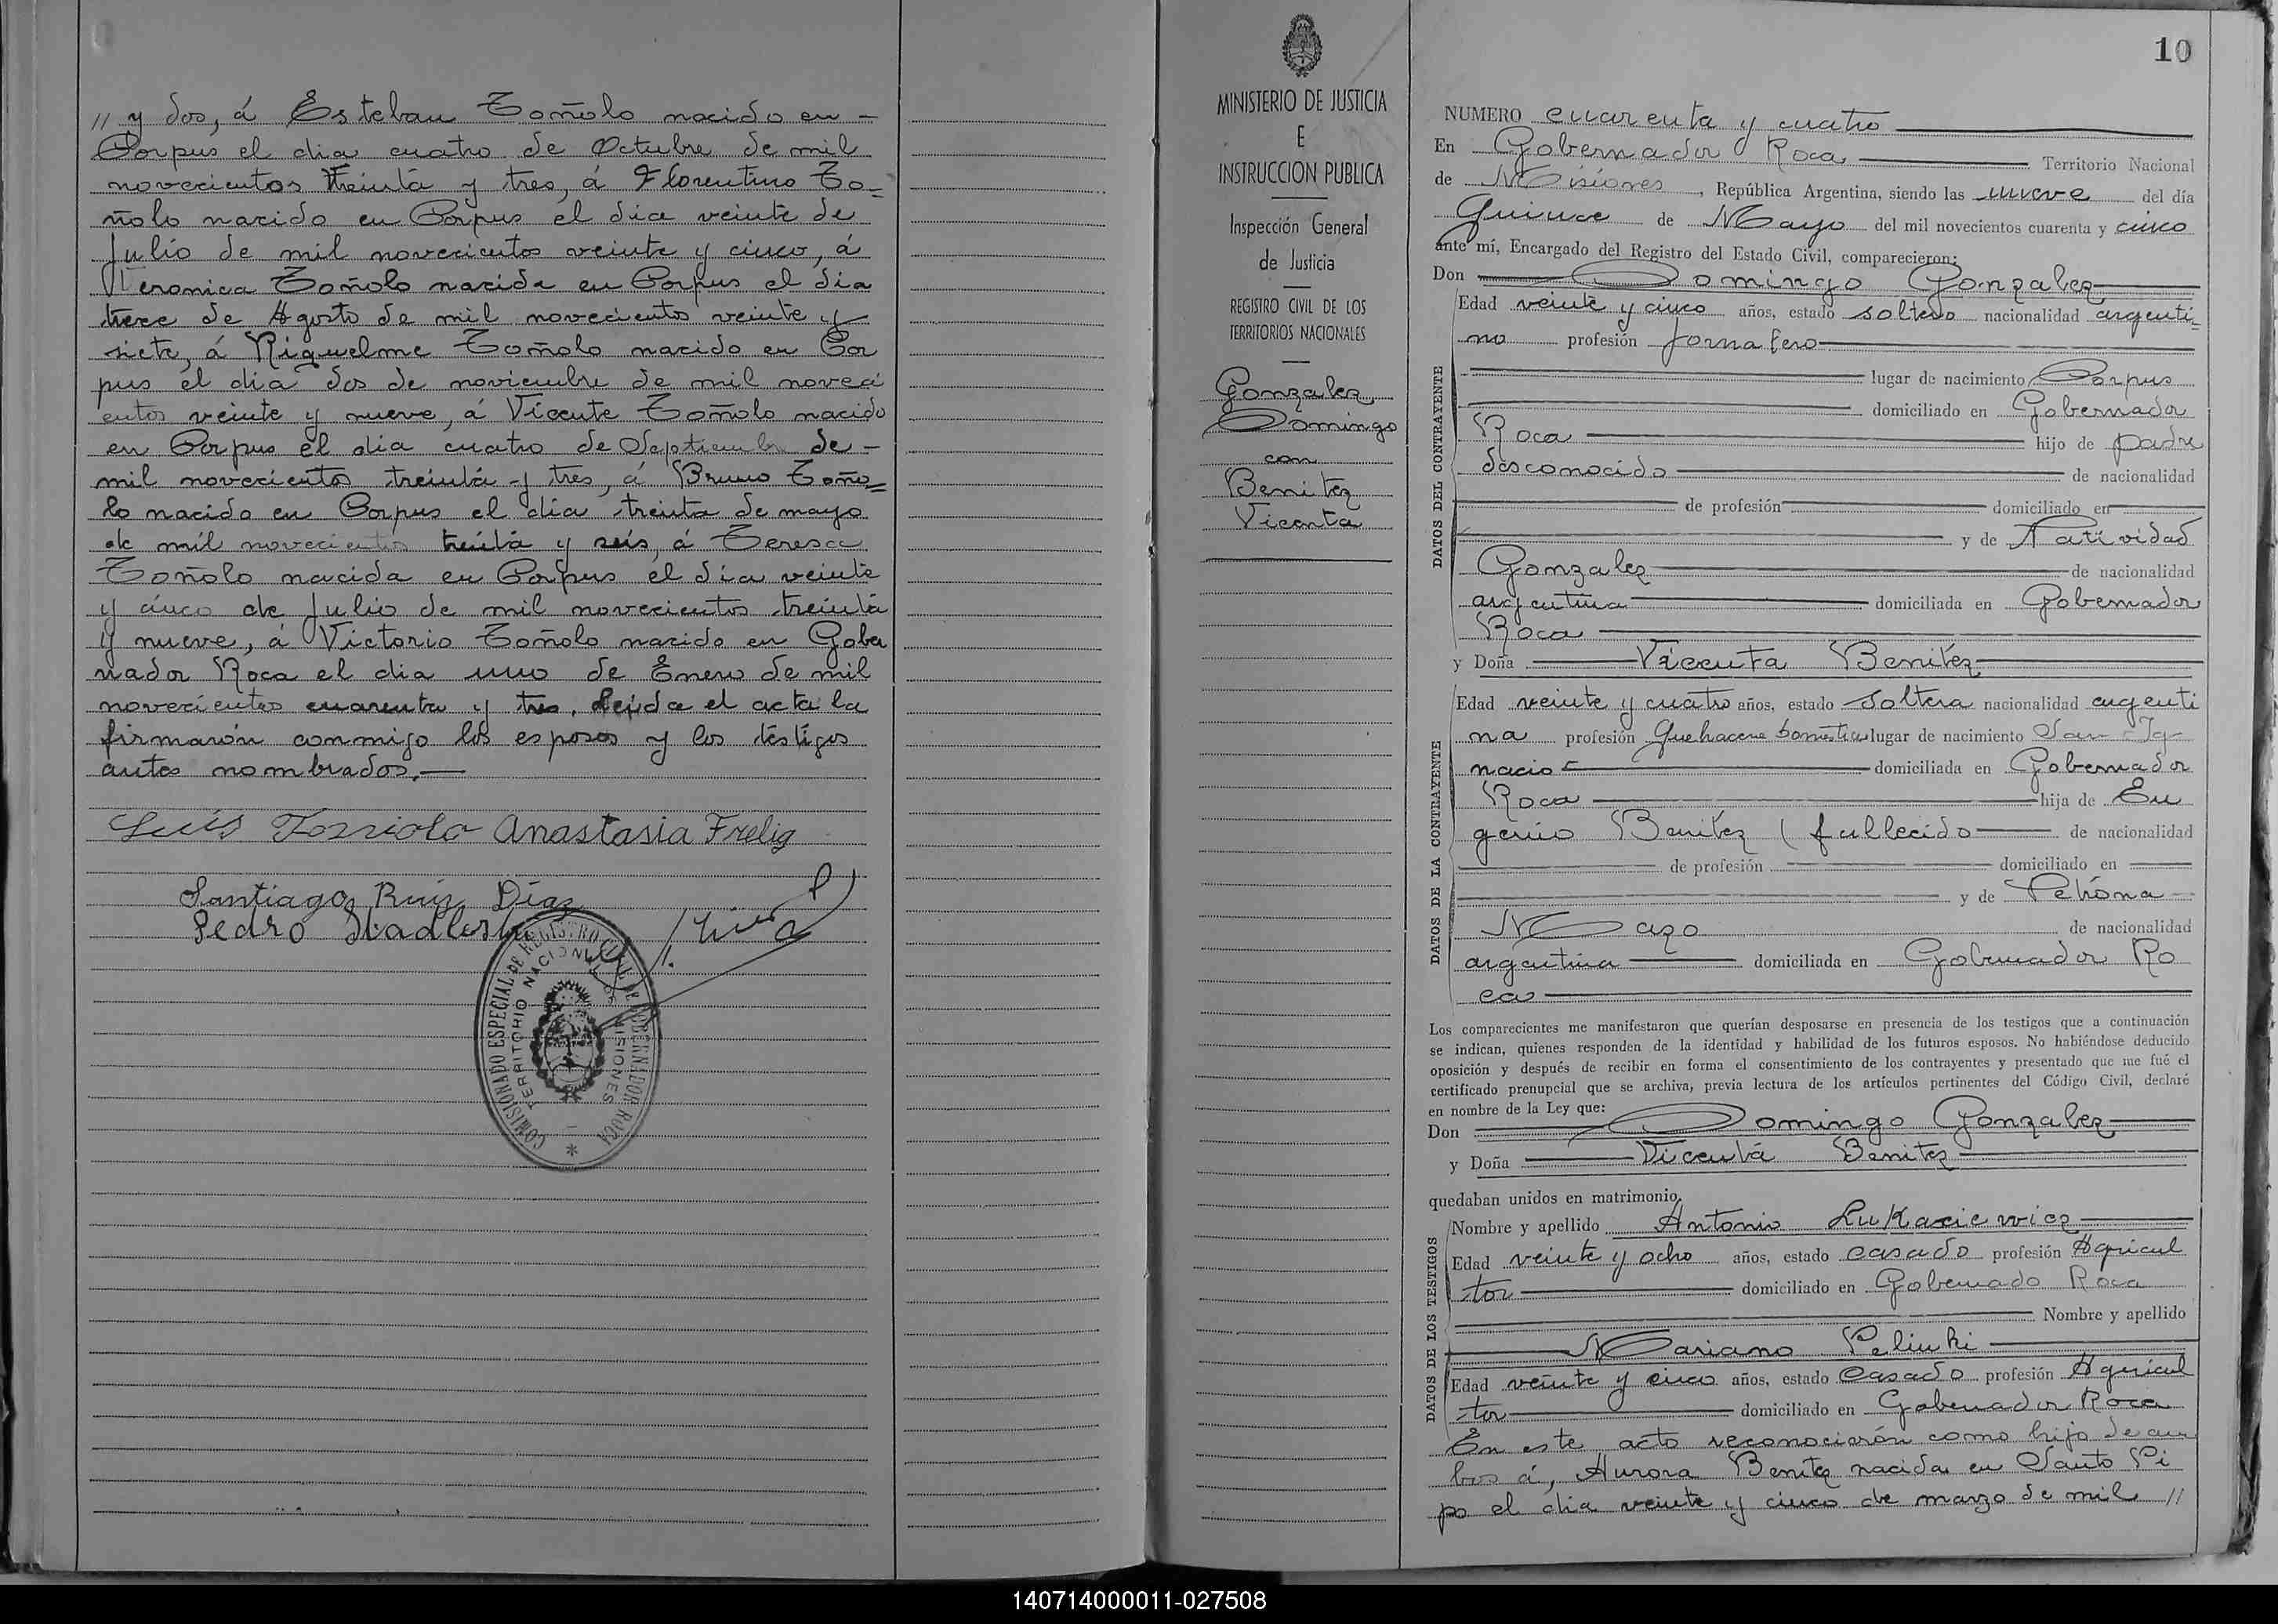 // y dos, á Esteban Toñolo nacido en -
Corpus el dia cuatro de Octubre de mil
novecientos treinta y tres, á Florentino To=
ñolo nacido en Corpus el dia veinte de
Julio de mil novecientos veinte y cinco, á
Veronica Toñolo nacida en Corpus el dia
trece de Agosto de mil novecientos veinte y
siete, á Riquelme Toñolo nacido en Cor
pus el dia dos de noviembre de mil noveci
entos veinte y nueve, á Vicente Toñolo nacido
en Corpus el dia cuatro de Septiembre de -
mil novecientos treinta y tres, á Bruno Toño=
lo nacido en Corpus el dia treinta de mayo
de mil novecientos treinta y seis, á Teresa
Toñolo nacida en Corpus el dia veinte
y cinco de Julio de mil novecientos treinta
y nueve, á Victorio Toñolo nacido en Gober
nador Roca el dia uno de Enero de mil
novecientos cuarenta y tres. Leida el acta la
firmarón conmigo los esposos y los testigos
antes nombrados.—
Luis Tozziolo Anastasia Frelig
Santiago Ruiz Díaz
Pedro
COMISIONADO ESPECIAL DE REGISTRO CIVIL DE GOBERNADOR ROCA
TERRITORIO NACIONAL DE MISIONES
MINISTERIO DE JUSTICIA
E
INSTRUCCION PUBLICA
Inspección General
de Justicia
REGISTRO CIVIL DE LOS
TERRITORIOS NACIONALES
Gonzalez
Domingo
con
Benitez
Vicenta
10
NUMERO cuarenta y cuatro
En Gobernador Roca Territorio Nacional
de Misiones, República Argentina, siendo las nueve del día
Quince de Mayo del mil novecientos cuarenta y cinco
ante mí, Encargado del Registro del Estado Civil, comparecieron:
Don Domingo Gonzalez
DATOS DEL CONTRAYENTE
Edad veinte y cinco años, estado soltero nacionalidad argenti=
no profesión Jornalero
lugar de nacimiento Corpus
domiciliado en Gobernador
Roca hijo de padre
desconocido de nacionalidad
de profesión domiciliado en
y de Natividad
Gonzalez de nacionalidad
argentina domiciliada en Gobernador
Roca
y Doña Vicenta Benitez
DATOS DE LA CONTRAYENTE
Edad veinte y cuatro años, estado Soltera nacionalidad argenti
na profesión Quehacere Domestico lugar de nacimiento San Ig-
nacio domiciliada en Gobernador
Roca hija de Eu
genio Benitez (fallecido de nacionalidad
de profesión domiciliado en
y de Petrona
Mazo de nacionalidad
argentina domiciliada en Gobernador Ro
ca
Los comparecientes me manifestaron que querían desposarse en presencia de los testigos que a continuación
se indican, quienes responden de la identidad y habilidad de los futuros esposos. No habiéndose deducido
oposición y después de recibir en forma el consentimiento de los contrayentes y presentado que me fué el
certificado prenupcial que se archiva, previa lectura de los artículos pertinentes del Código Civil, declaré
en nombre de la Ley que:
Don Domingo Gonzalez
y Doña Vicenta Benitez
quedaban unidos en matrimonio.
DATOS DE LOS TESTIGOS
Nombre y apellido Antonio Lukasiewicz
Edad veinte y ocho años, estado casado profesión Agricul
tor domiciliado en Gobernado Roca
Nombre y apellido
Mariano Peliuki
Edad veinte y cinco años, estado Casado profesión Agricul
tor domiciliado en Gobernador Roca
En este acto reconocierón como hijo de am
bos á, Aurora Benitez nacida en Santo Pi
po el dia veinte y cinco de marzo de mil //
140714000011-027508